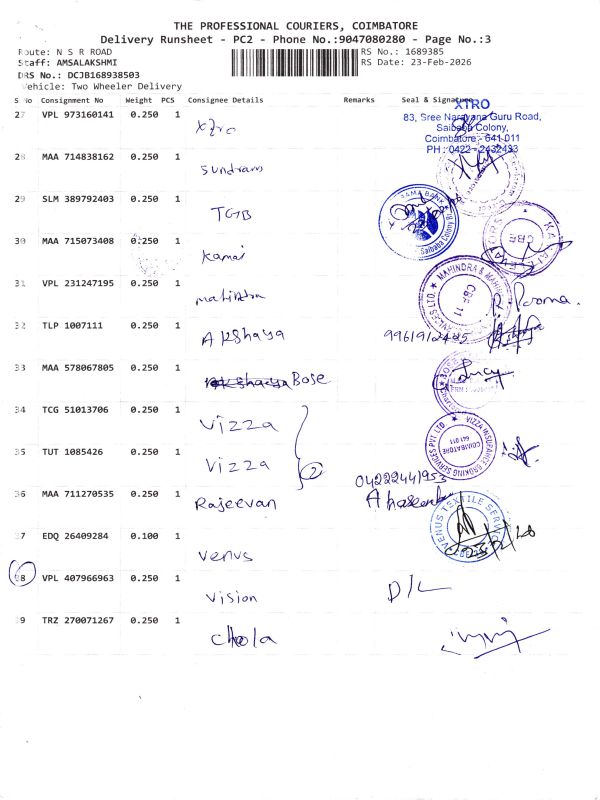 THE PROFESSIONAL COURIERS, COIMBATORE
Delivery Runsheet - PC2 - Phone No.:9047080280 - Page No.:3
Route: N S R ROAD
RS No.: 1689385
Staff: AMSALAKSHMI
RS Date: 23-Feb-2026
DRS No.: DCJB168938503
Vehicle: Two Wheeler Delivery
S No Consignment No Weight PCS Consignee Details Remarks Seal & Signature
XTRO
83, Sree Narayana Guru Road,
Saibaba Colony,
Coimbatore - 641 011
PH : 0422 - 2432433
27 VPL 973160141 0.250 1 Xtro
28 MAA 714838162 0.250 1 Sundram
29 SLM 389792403 0.250 1 TGB
30 MAA 715073408 0.250 1 Kamal
31 VPL 231247195 0.250 1 Mahindra R. Poorna.
MAHINDRA & MAHINDRA
CBF 11
32 TLP 1007111 0.250 1 Akshaya
33 MAA 578067805 0.250 1 Bose Lucy
34 TCG 51013706 0.250 1 Vizza
VIZZA INSURANCE BROKING SERVICES PVT LTD
COIMBATORE
641 011
35 TUT 1085426 0.250 1 Vizza
2
04222441953
36 MAA 711270535 0.250 1 Rajeevan
VENUS TEXTILE SERVICE
37 EDQ 26409284 0.100 1 Venus
38 VPL 407966963 0.250 1 Vision D/L
39 TRZ 270071267 0.250 1 Chola